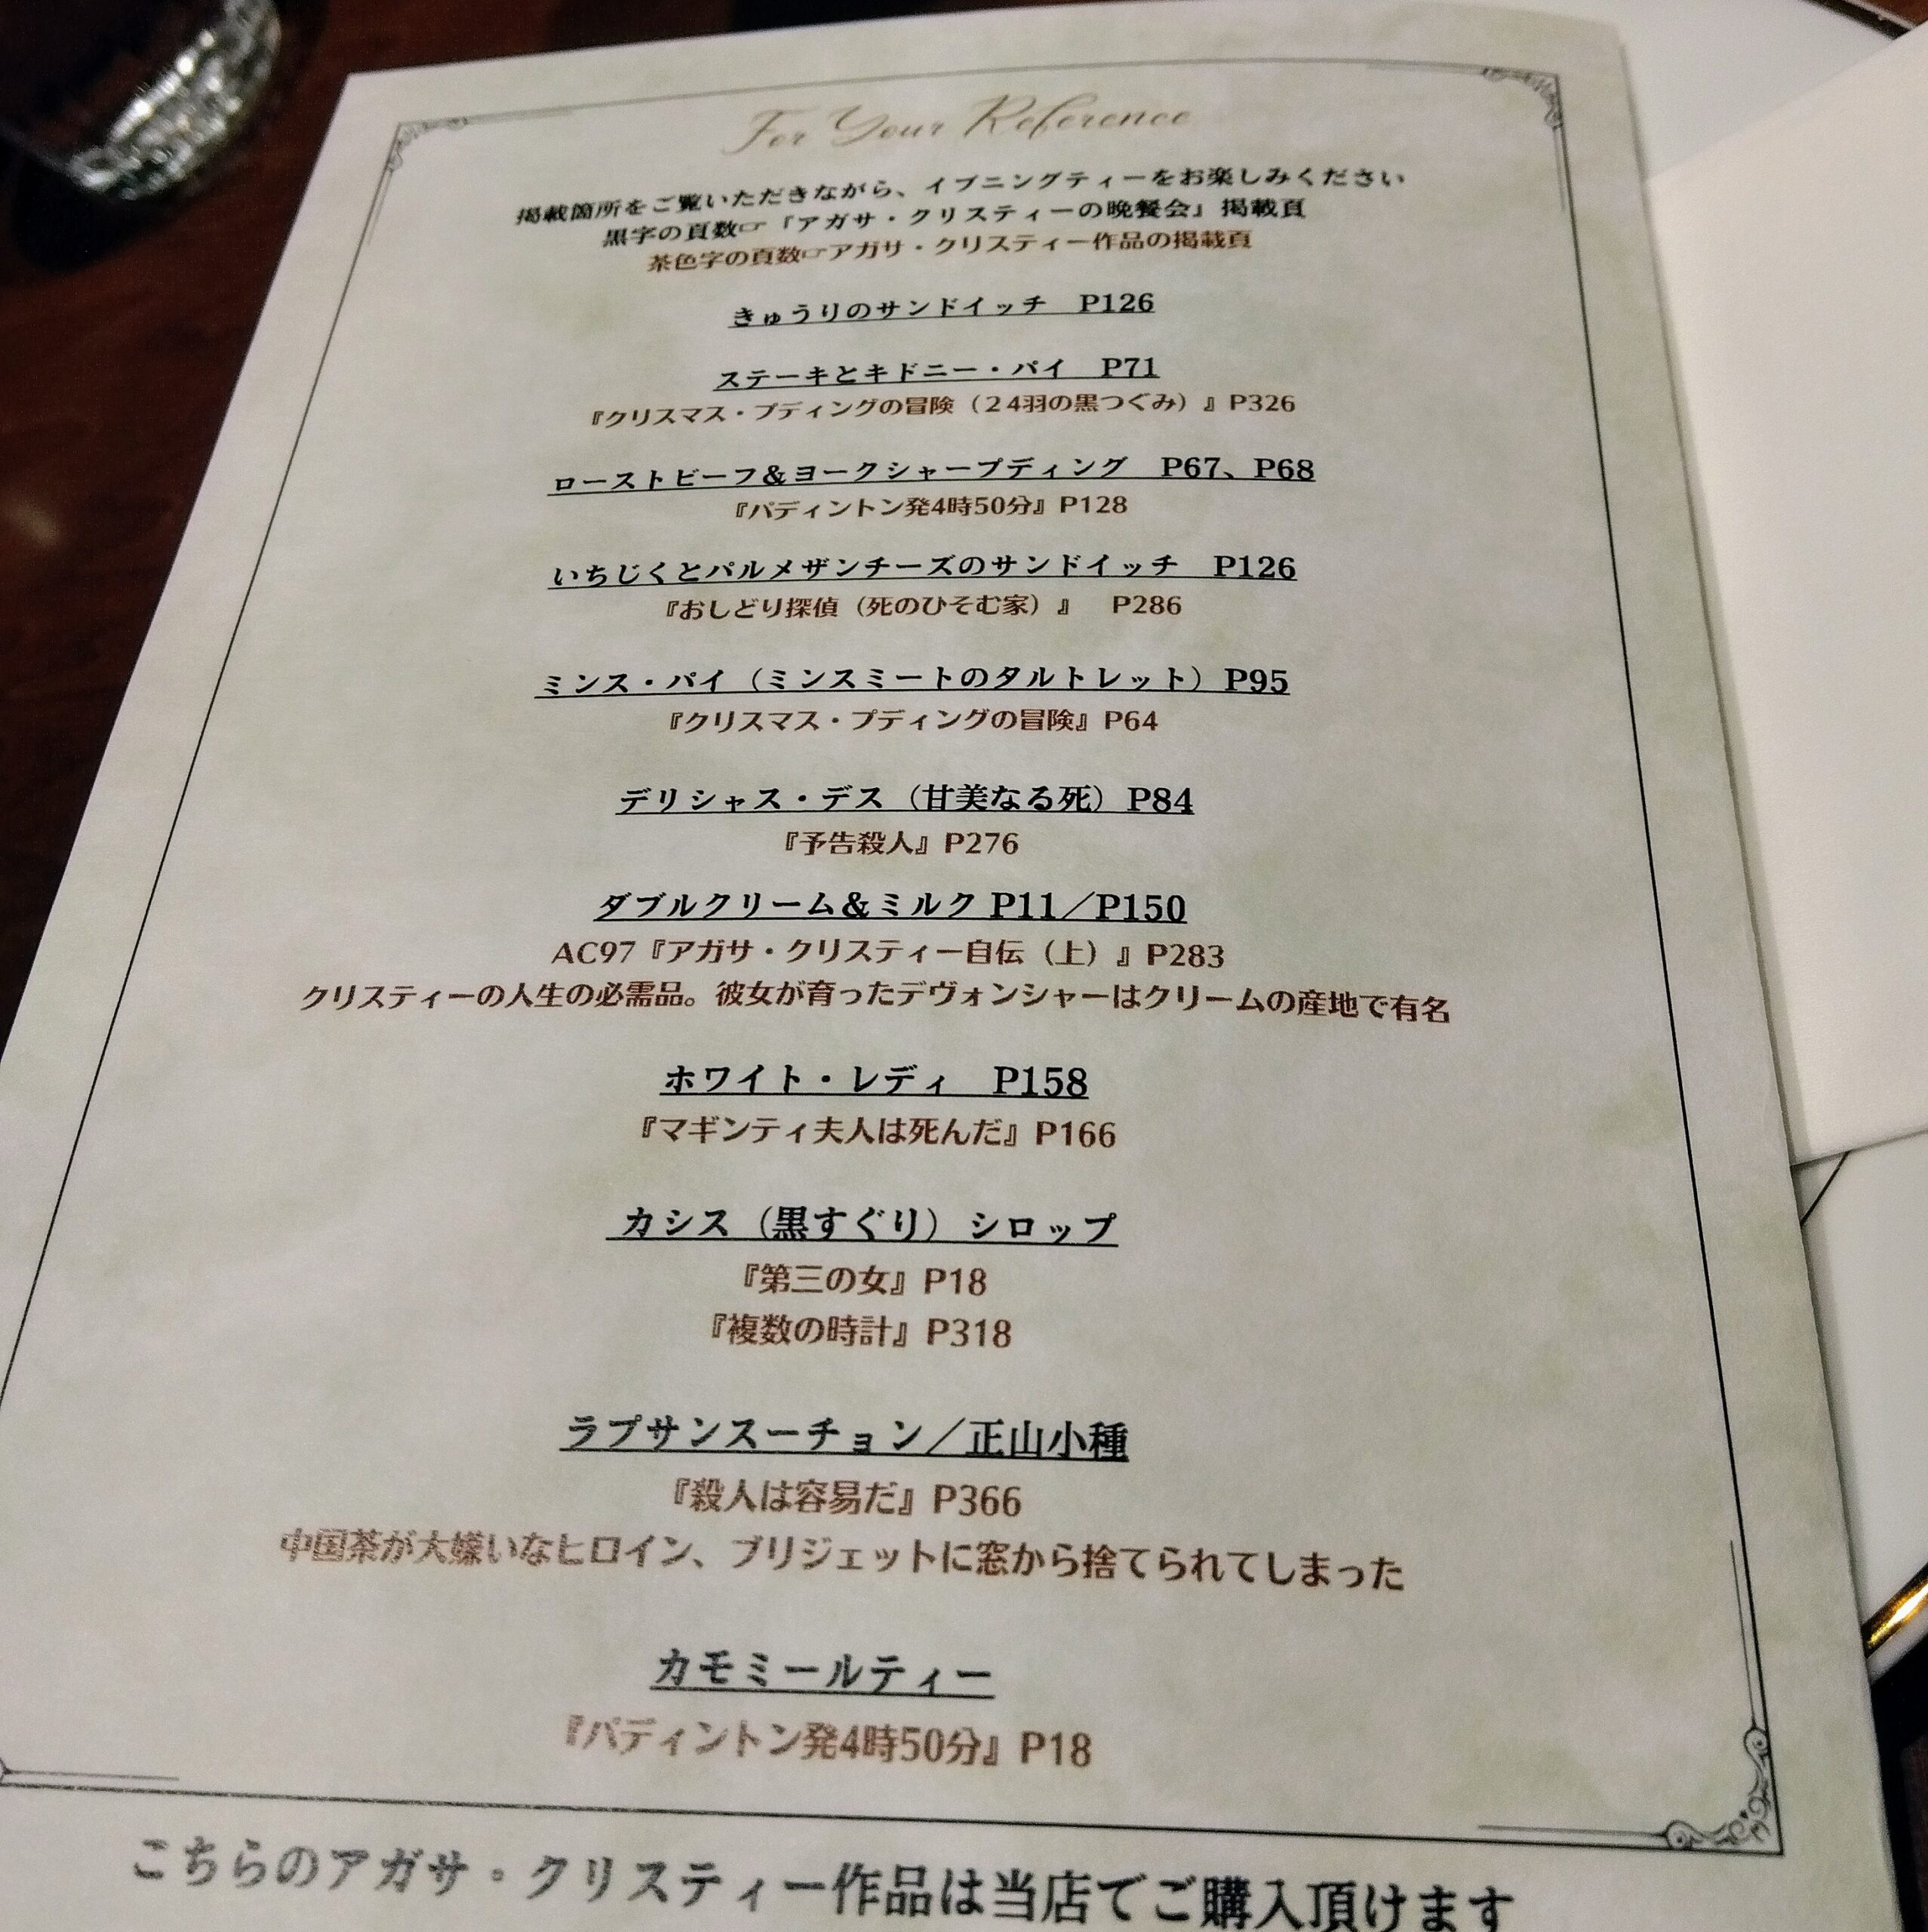 For Your Reference
掲載箇所をご覧いただきながら、イブニングティーをお楽しみください
黒字の頁数☞「アガサ・クリスティーの晩餐会」掲載頁
茶色字の頁数☞アガサ・クリスティー作品の掲載頁
きゅうりのサンドイッチ　P126
ステーキとキドニー・パイ　P71
『クリスマス・プディングの冒険（２４羽の黒つぐみ）』P326
ローストビーフ＆ヨークシャープディング　P67、P68
『パディントン発4時50分』P128
いちじくとパルメザンチーズのサンドイッチ　P126
『おしどり探偵（死のひそむ家）』　P286
ミンス・パイ（ミンスミートのタルトレット）P95
『クリスマス・プディングの冒険』P64
デリシャス・デス（甘美なる死）P84
『予告殺人』P276
ダブルクリーム＆ミルク P11／P150
AC97『アガサ・クリスティー自伝（上）』P283
クリスティーの人生の必需品。彼女が育ったデヴォンシャーはクリームの産地で有名
ホワイト・レディ　P158
『マギンティ夫人は死んだ』P166
カシス（黒すぐり）シロップ
『第三の女』P18
『複数の時計』P318
ラプサンスーチョン／正山小種
『殺人は容易だ』P366
中国茶が大嫌いなヒロイン、ブリジェットに窓から捨てられてしまった
カモミールティー
『パディントン発4時50分』P18
こちらのアガサ・クリスティー作品は当店でご購入頂けます